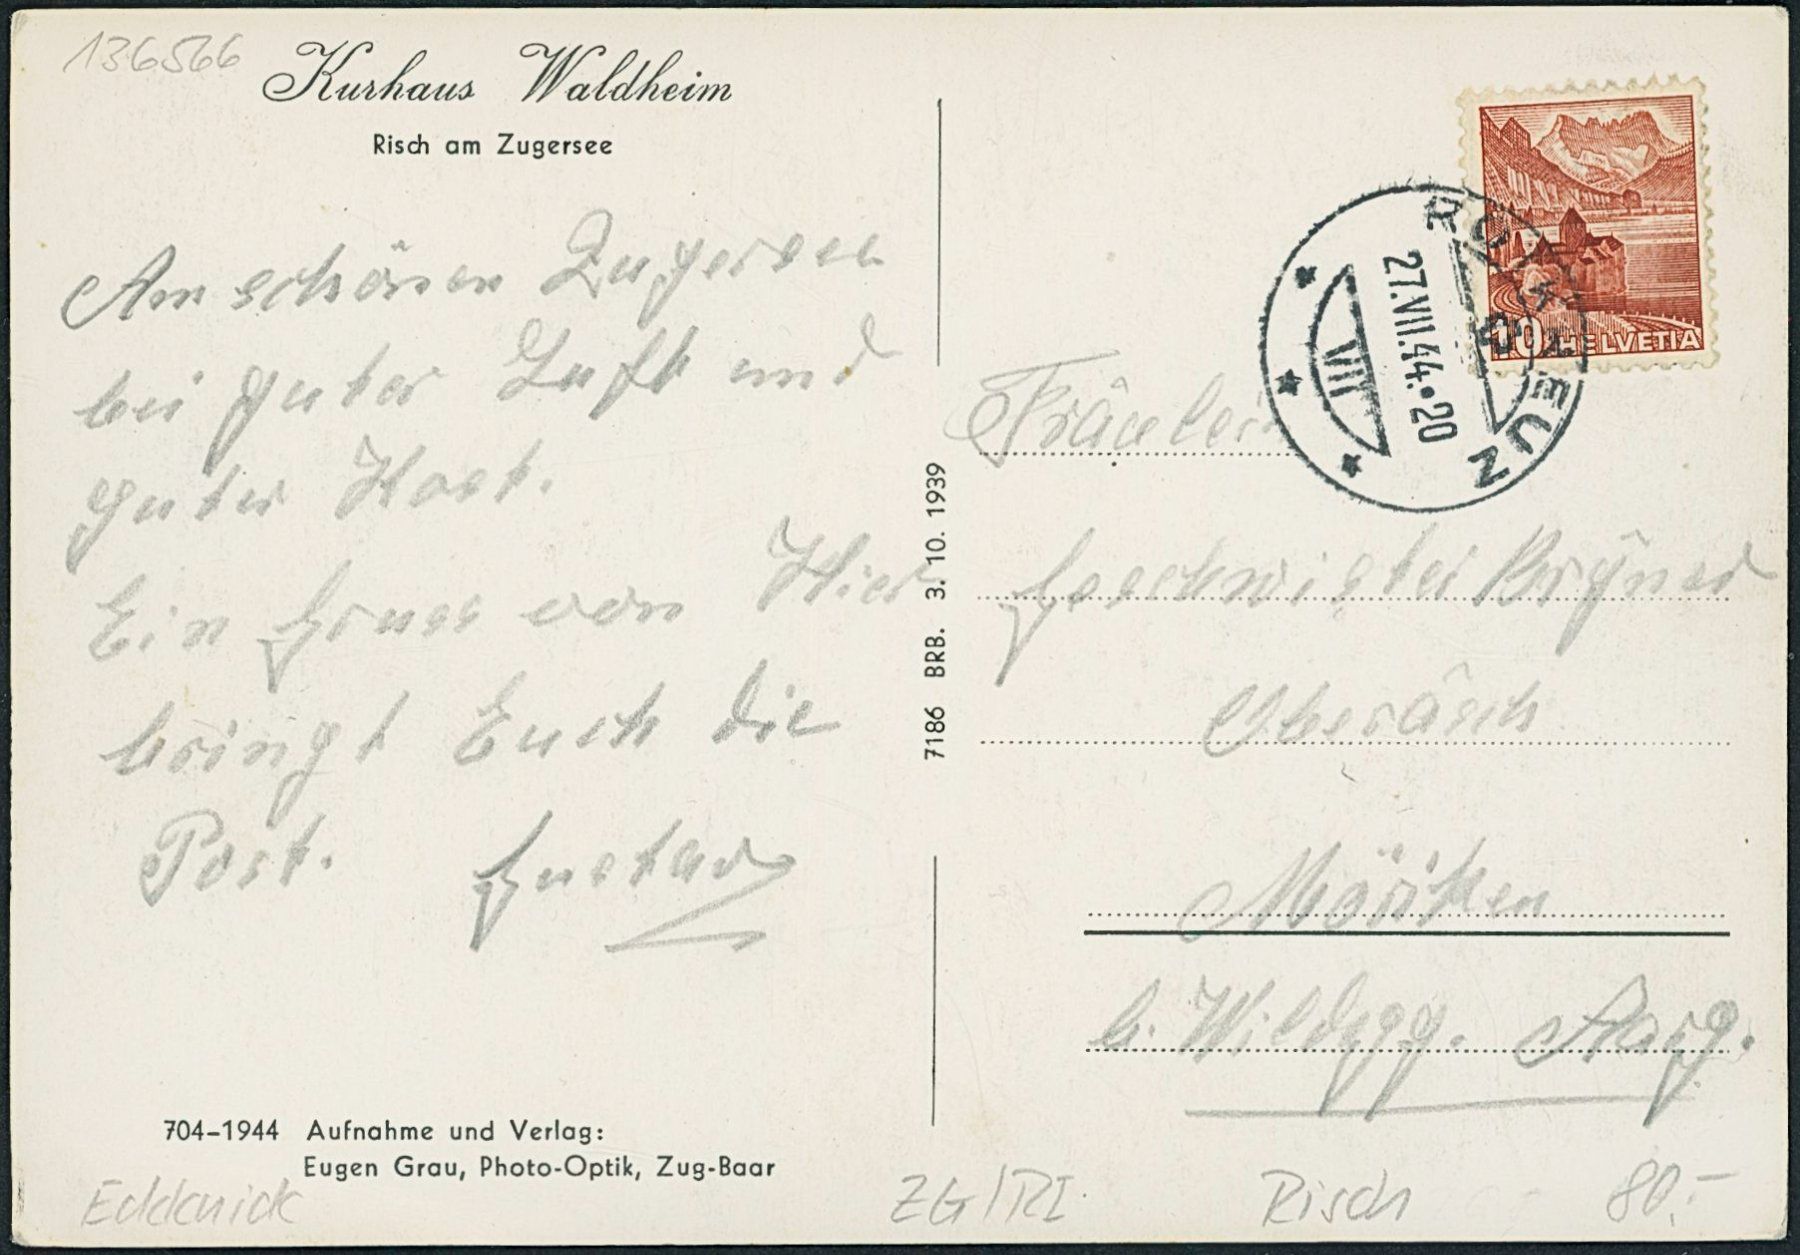 136566
Kurhaus Waldheim
Risch am Zugersee
Am schönen Zugersee
bei guter Luft und
guter Kost.
Ein Gruss von Hier
bringt Euch die
Post. Gustav
704-1944 Aufnahme und Verlag:
Eugen Grau, Photo-Optik, Zug-Baar
Eckknick
7186 BRB. 3. 10. 1939
10 HELVETIA
27.VII.44.20
VIII
KREUZ
Fräulein
Geschwister Bryner
Oberäsch
Möriken
b. Wildegg. Aarg.
ZG/RI
Risch
80.-